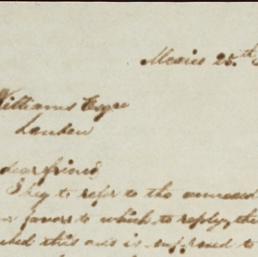 Mexico 25th
Williams Esqre
London
dear friend
I beg to refer to the annexed
favors to which to reply, the
this is supposed to